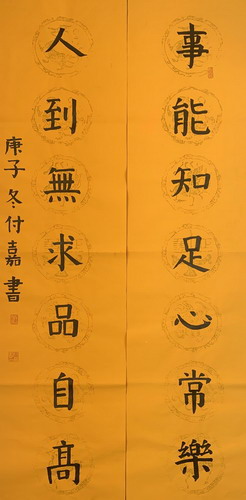 事能知足心常樂
人到無求品自高
庚子冬付嘉書